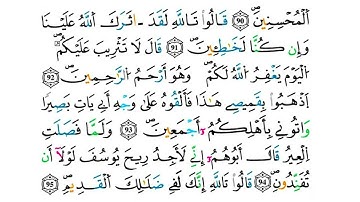 الْمُحْسِنِينَ ﴿90﴾ قَالُوا تَاللَّهِ لَقَدْ ءَاثَرَكَ اللَّهُ عَلَيْنَا
وَإِن كُنَّا لَخَاطِئِينَ ﴿91﴾ قَالَ لَا تَثْرِيبَ عَلَيْكُمُ
الْيَوْمَ يَغْفِرُ اللَّهُ لَكُمْ وَهُوَ أَرْحَمُ الرَّاحِمِينَ ﴿92﴾
اذْهَبُوا بِقَمِيصِي هَٰذَا فَأَلْقُوهُ عَلَىٰ وَجْهِ أَبِي يَأْتِ بَصِيرًا
وَأْتُونِي بِأَهْلِكُمْ أَجْمَعِينَ ﴿93﴾ وَلَمَّا فَصَلَتِ
الْعِيرُ قَالَ أَبُوهُمْ إِنِّي لَأَجِدُ رِيحَ يُوسُفَ لَوْلَا أَن
تُفَنِّدُونِ ﴿94﴾ قَالُوا تَاللَّهِ إِنَّكَ لَفِي ضَلَالِكَ الْقَدِيمِ ﴿95﴾